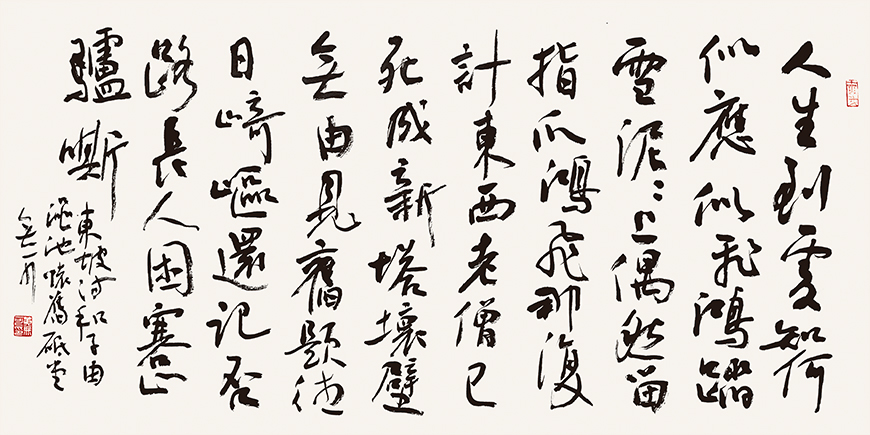 人生到處知何
似應似飛鴻踏
雪泥〻上偶然留
指爪鴻飛那復
計東西老僧已
死成新塔壞壁
無由見舊題往
日崎嶇還記否
路長人困蹇
驢嘶
東坡詩和子由
澠池懷舊